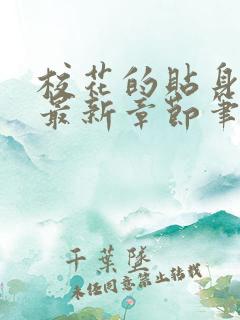 校花的贴身
最新章节笔
千葉墜
未经同意禁止转载